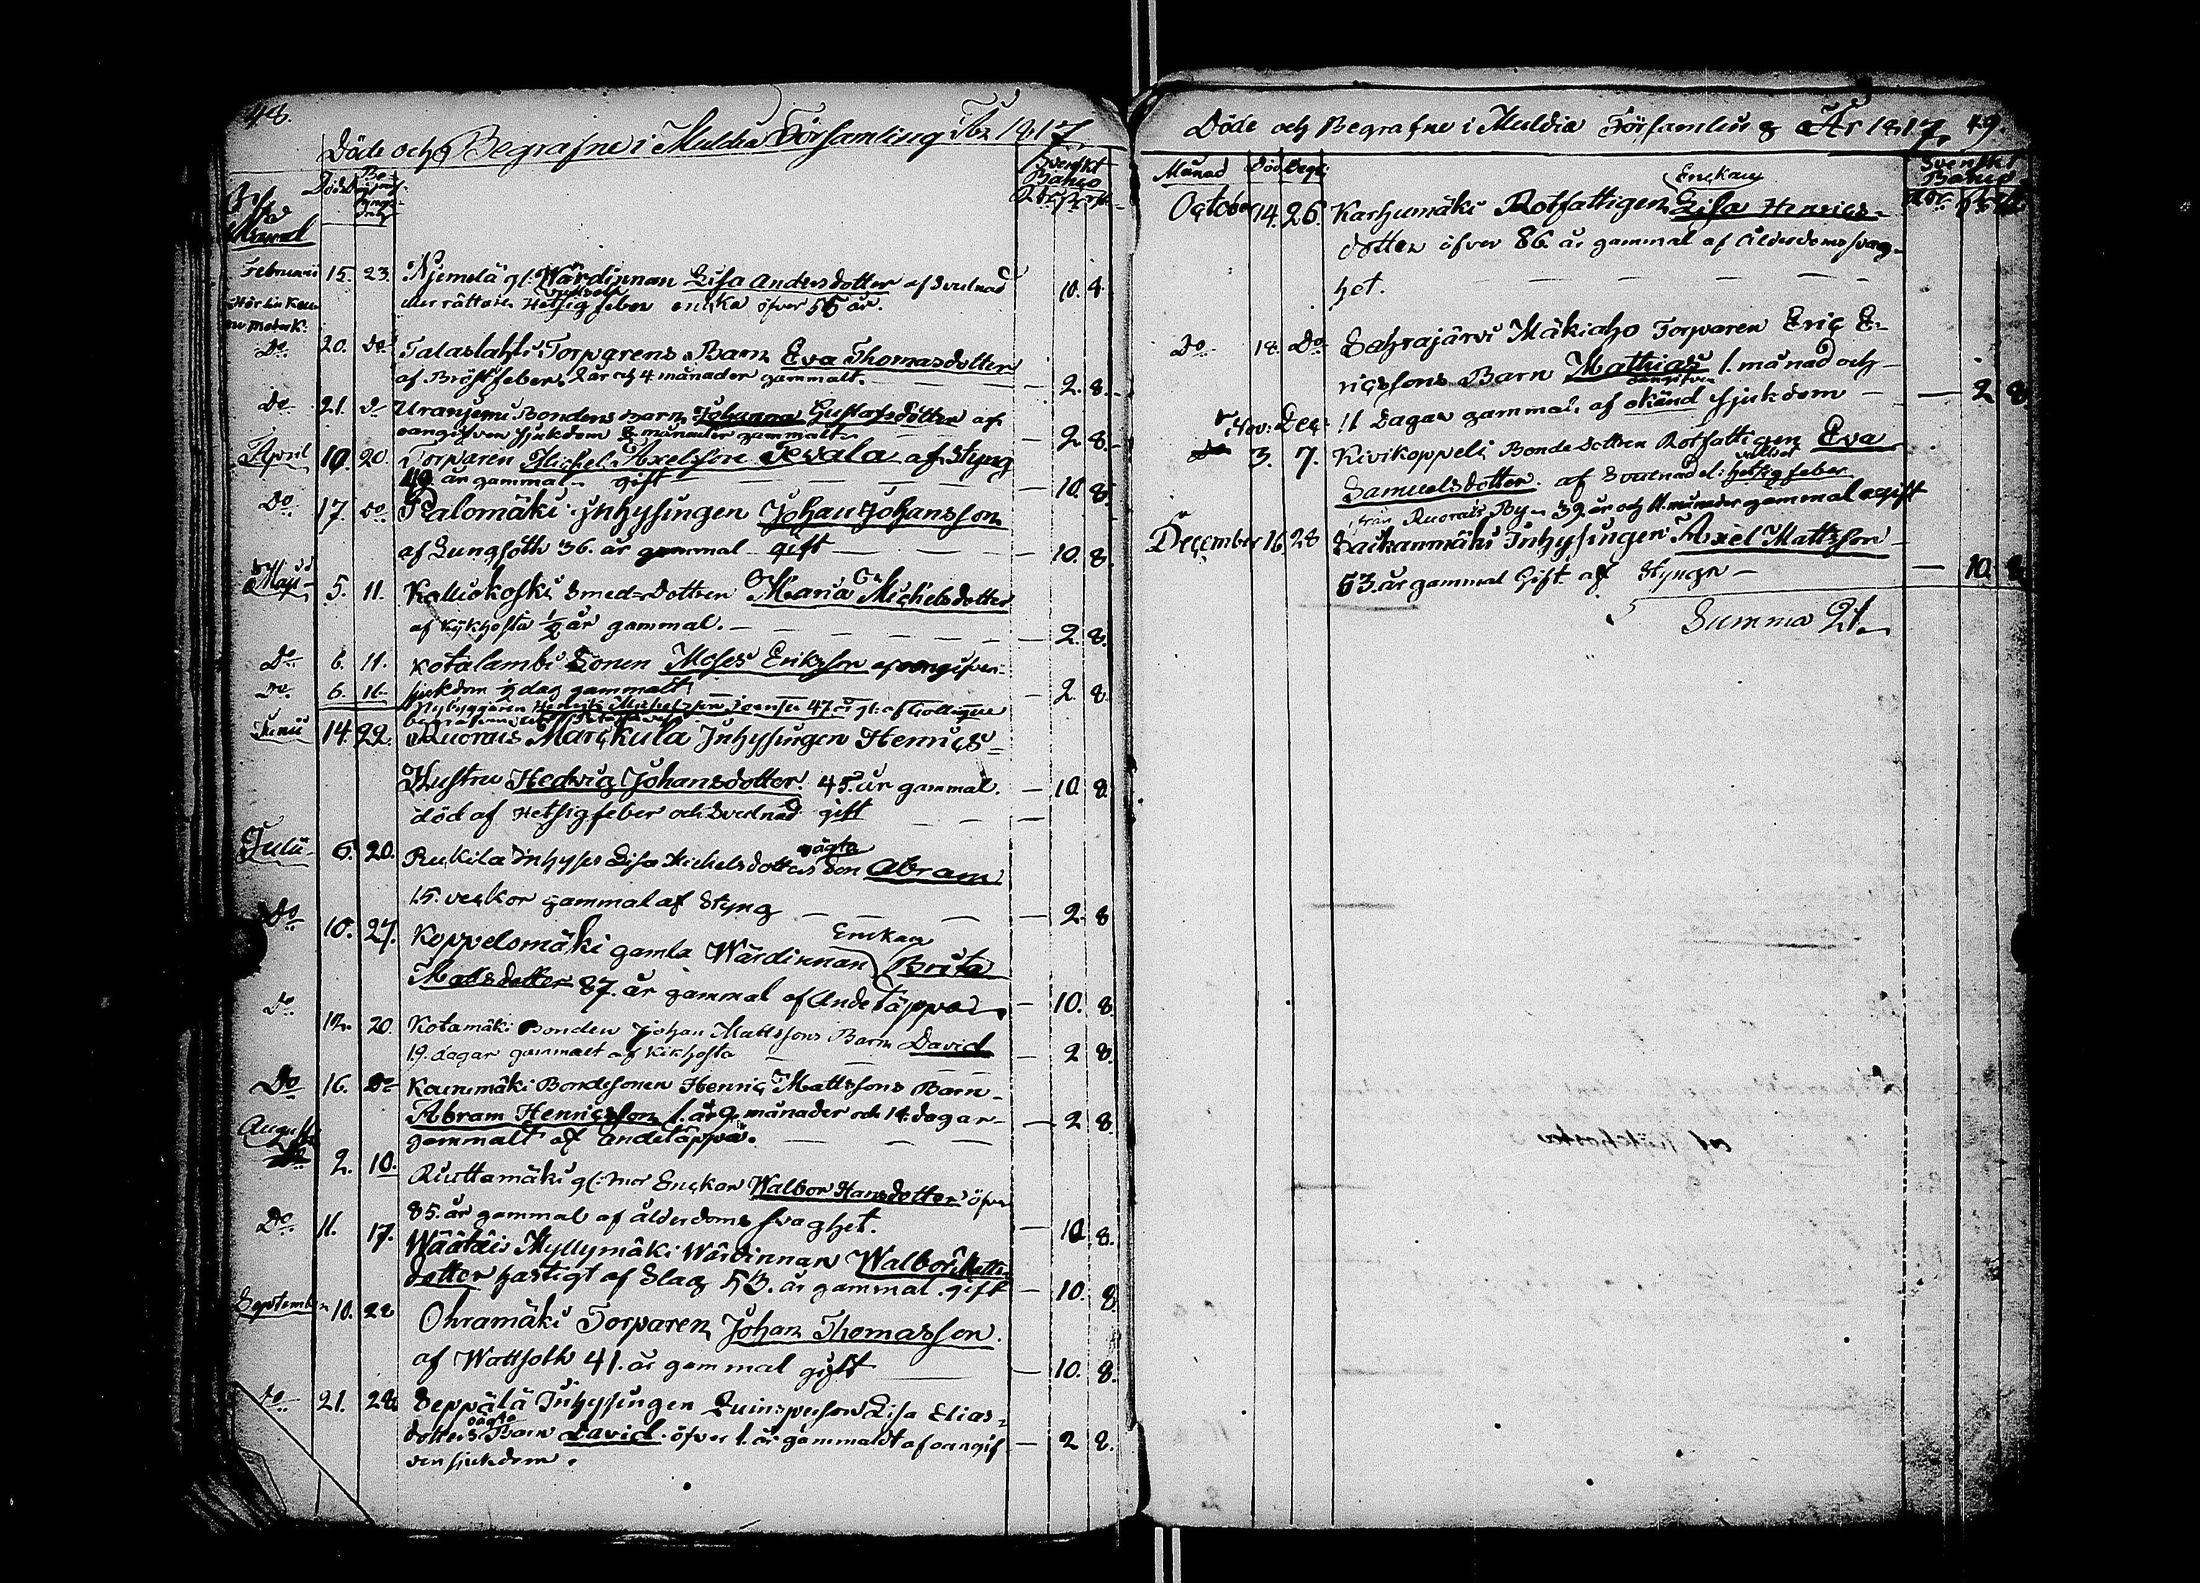 48.
Döde och Begrafne i Muldia Församling År 1817.
Svenskt
Banco
Död
Februarii 15. 23. Njemelä gl: Wärdinnan Lisa Andersdotter af Svulnad
eller rättare Hetsig feber encka öfver 55 år. 10. 8
Do 20. do Talaslahti Torparens Barn Eva Thomasdotter
af Bröstfeber, 2 år och 4 månader gammalt. — 2. 8.
Do 21. do Uranjemi Bondens barn Johanna Gustafsdotter af
oangifven sjukdom 2 månader gammalt. — 2. 8.
April 10. 20. Torparen Michel Axelsson Tevala af Styng
49 år gammal. gift — 10. 8.
Do 17. do Palomäki Inhysingen Johan Johansson
af Lungsoth 36. år gammal gift — 10. 8.
Maji 5. 11. Kalliokoski Smed-Dottren Maria Michelsdotter
af kikhosta ½ år gammal. — 2. 8.
Do 6. 11. Kotalambi Sonen Moses Eriksson af oangifven
sjukdom ½ dag gammalt — 2. 8
Do 6. 16. Nybyggaren Henrik Michelsson 47 år gl: af
Junii 14. 22. Ruorais Marckula Inhysingen Henrics
Hustru Hedvig Johansdotter. 45. år gammal. — 10. 8.
död af Hetsigfeber och Svulnad gift —
Julii 6. 20. Ruckila Inhyses Lisa Michelsdotters oägta Son Abram
15. veckor gammal af Styng — 2. 8
Do 10. 27. Koppelomäki gamla Wärdinnan Enckan Brita
Matsdotter 87. år gammal af Andetäppa. — 10. 8.
Do 12. 20. Kotamäki Bonden Johan Mattssons Barn David
19. dagar gammalt af Kikhosta — 2 8.
Do 16. Do Kaunimäki Bondesonen Henric Mattssons Barn
Abram Henricsson 1. år 9 månader och 14. dagar — 2 8.
gammalt af andetäppa. —
Augusti
2. 10. Riuttamäki gl: mor Enckan Walbor Hansdotter öfver
85. år gammal af ålderdoms svaghet. — 10 8.
Do 11. 17. Wäätäis Myllymäki Wärdinnan Walbor Matts-
dotter hastigt af Slag 53. år gammal. gift — 10. 8.
September 10. 28 Ohramäki Torparen Johan Thomasson.
af Wattsoth 41. år gammal gift — 10. 8.
do 21. 28 Seppälä Inhysingen Qvinsperson Lisa Elias-
dotters oägta Barn David. öfver 1. år gammaldt af oangif — 2 8.
ven sjukdom.
Döde och Begrafne i Muldia Församling År 1817. 49.
Månad Död Begr:
Svenskt
Banco
October 14. 26. Karhumäki Rotfattigen Enckan Lisa Henrics-
dotter öfver 86. år gammal af Ålderdoms svag-
het. — — —
Do 18. Do Sahrajärvi Mäkiaho Torparen Eric E-
ricssons Barn Mathias 1. månad och
11 Dagar gammal. af oangifven okänd sjukdom — 2 8.
Nov: Dec:
3. 7. Kivikoppeli Bonde dottren Rotfattigen Eva
Samuelsdotter. af Svulnad el: hetsig feber
från Ruorais By 39. år och 11. månader gammal ogift
December 16 28 Saikanmäki Inhysingen Axel Mattsson
53. år gammal Gift af Styngn — — 10. 8.
Summa 21.